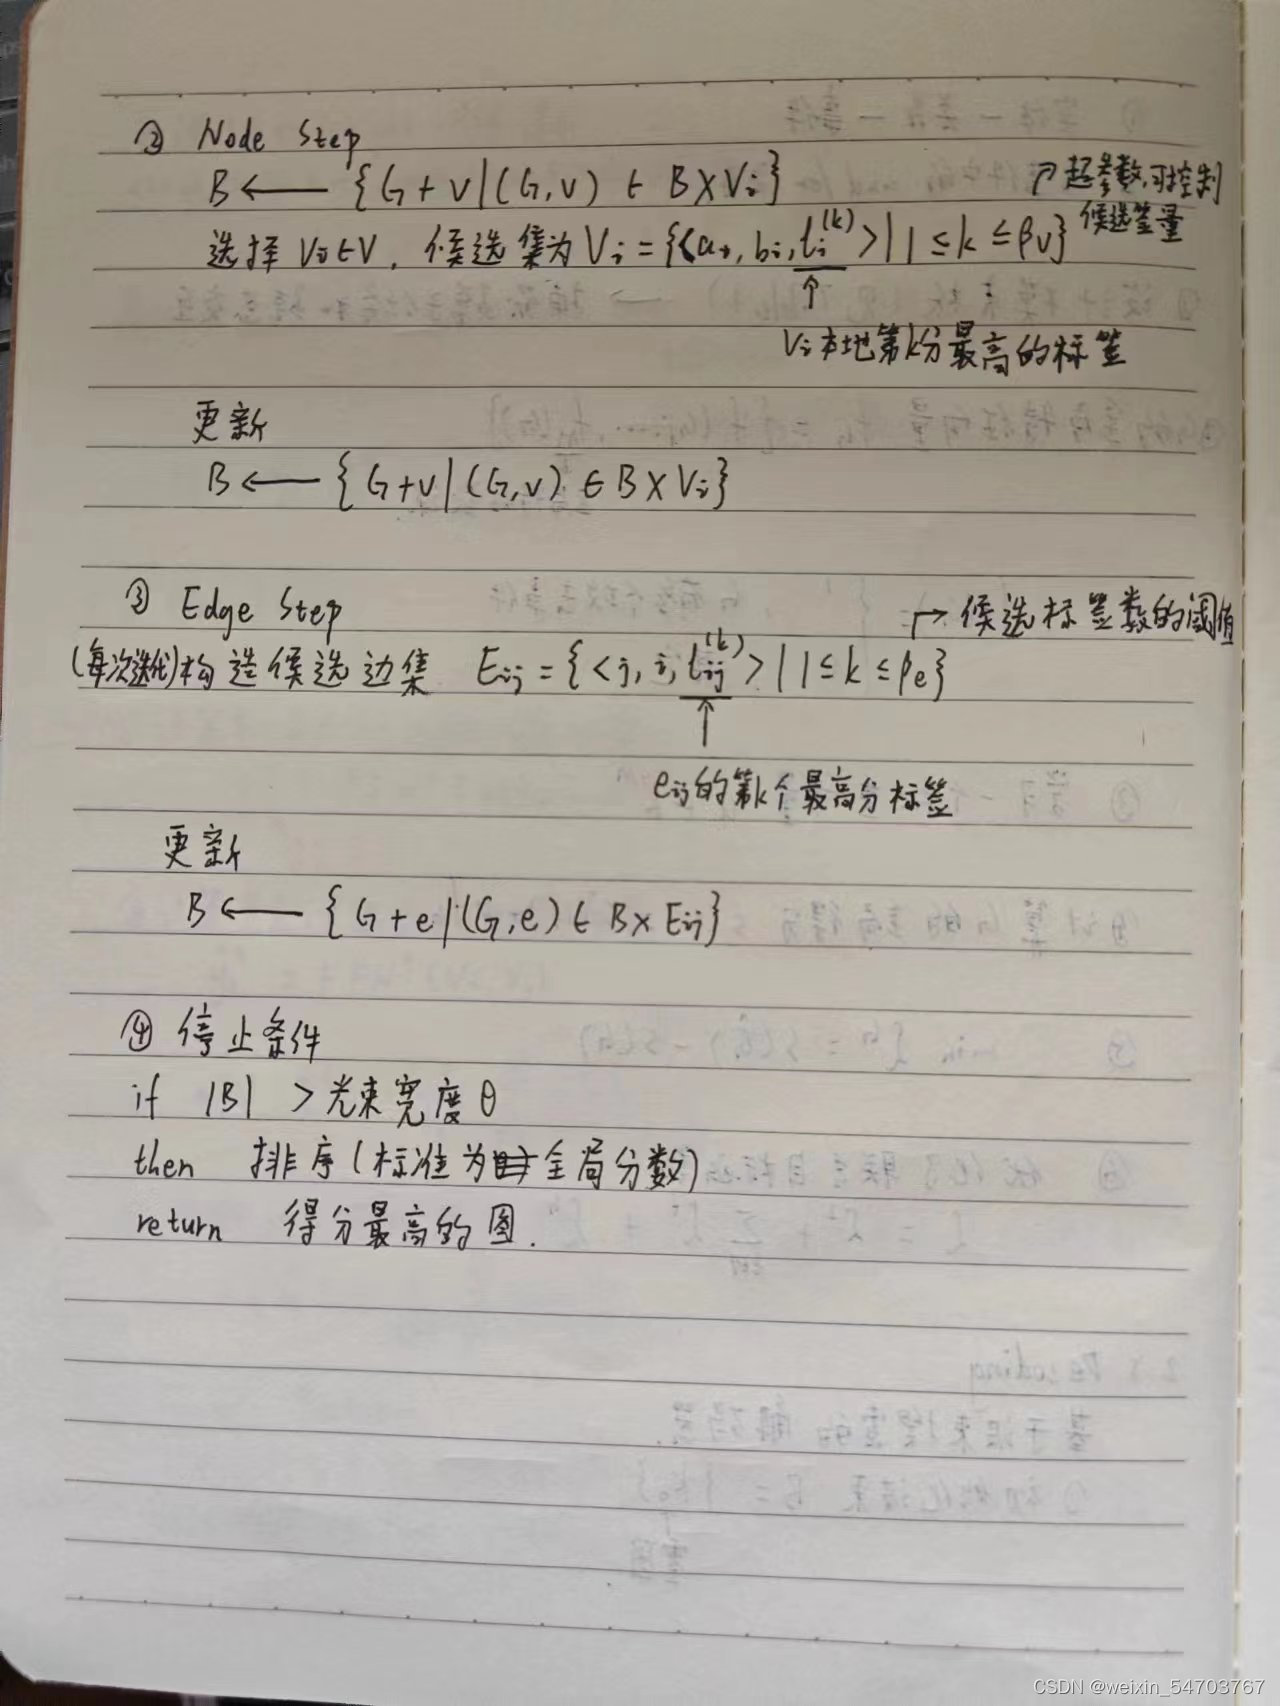 ② Node Step
B ← {G + v | (G, v) ∈ B × Vi}
↗超参数,可控制
选择 Vi ∈ V, 候选集为 Vi = {<ai, bi, li^(k)> | 1 ≤ k ≤ βv}
候选签量
↑
Vi 本地第k份最高的标签
更新
B ← {G + v | (G, v) ∈ B × Vi}
③ Edge Step
↱候选标签数的阈值
(每次迭代)构造候选边集 Eij = {<j, i, lij^(k)> | 1 ≤ k ≤ βe}
↑
eij的第k个最高分标签
更新
B ← {G + e | (G, e) ∈ B × Eij}
④ 停止条件
if |B| > 光束宽度θ
then 排序(标准为全局分数)
return 得分最高的图.
CSDN @weixin_54703767